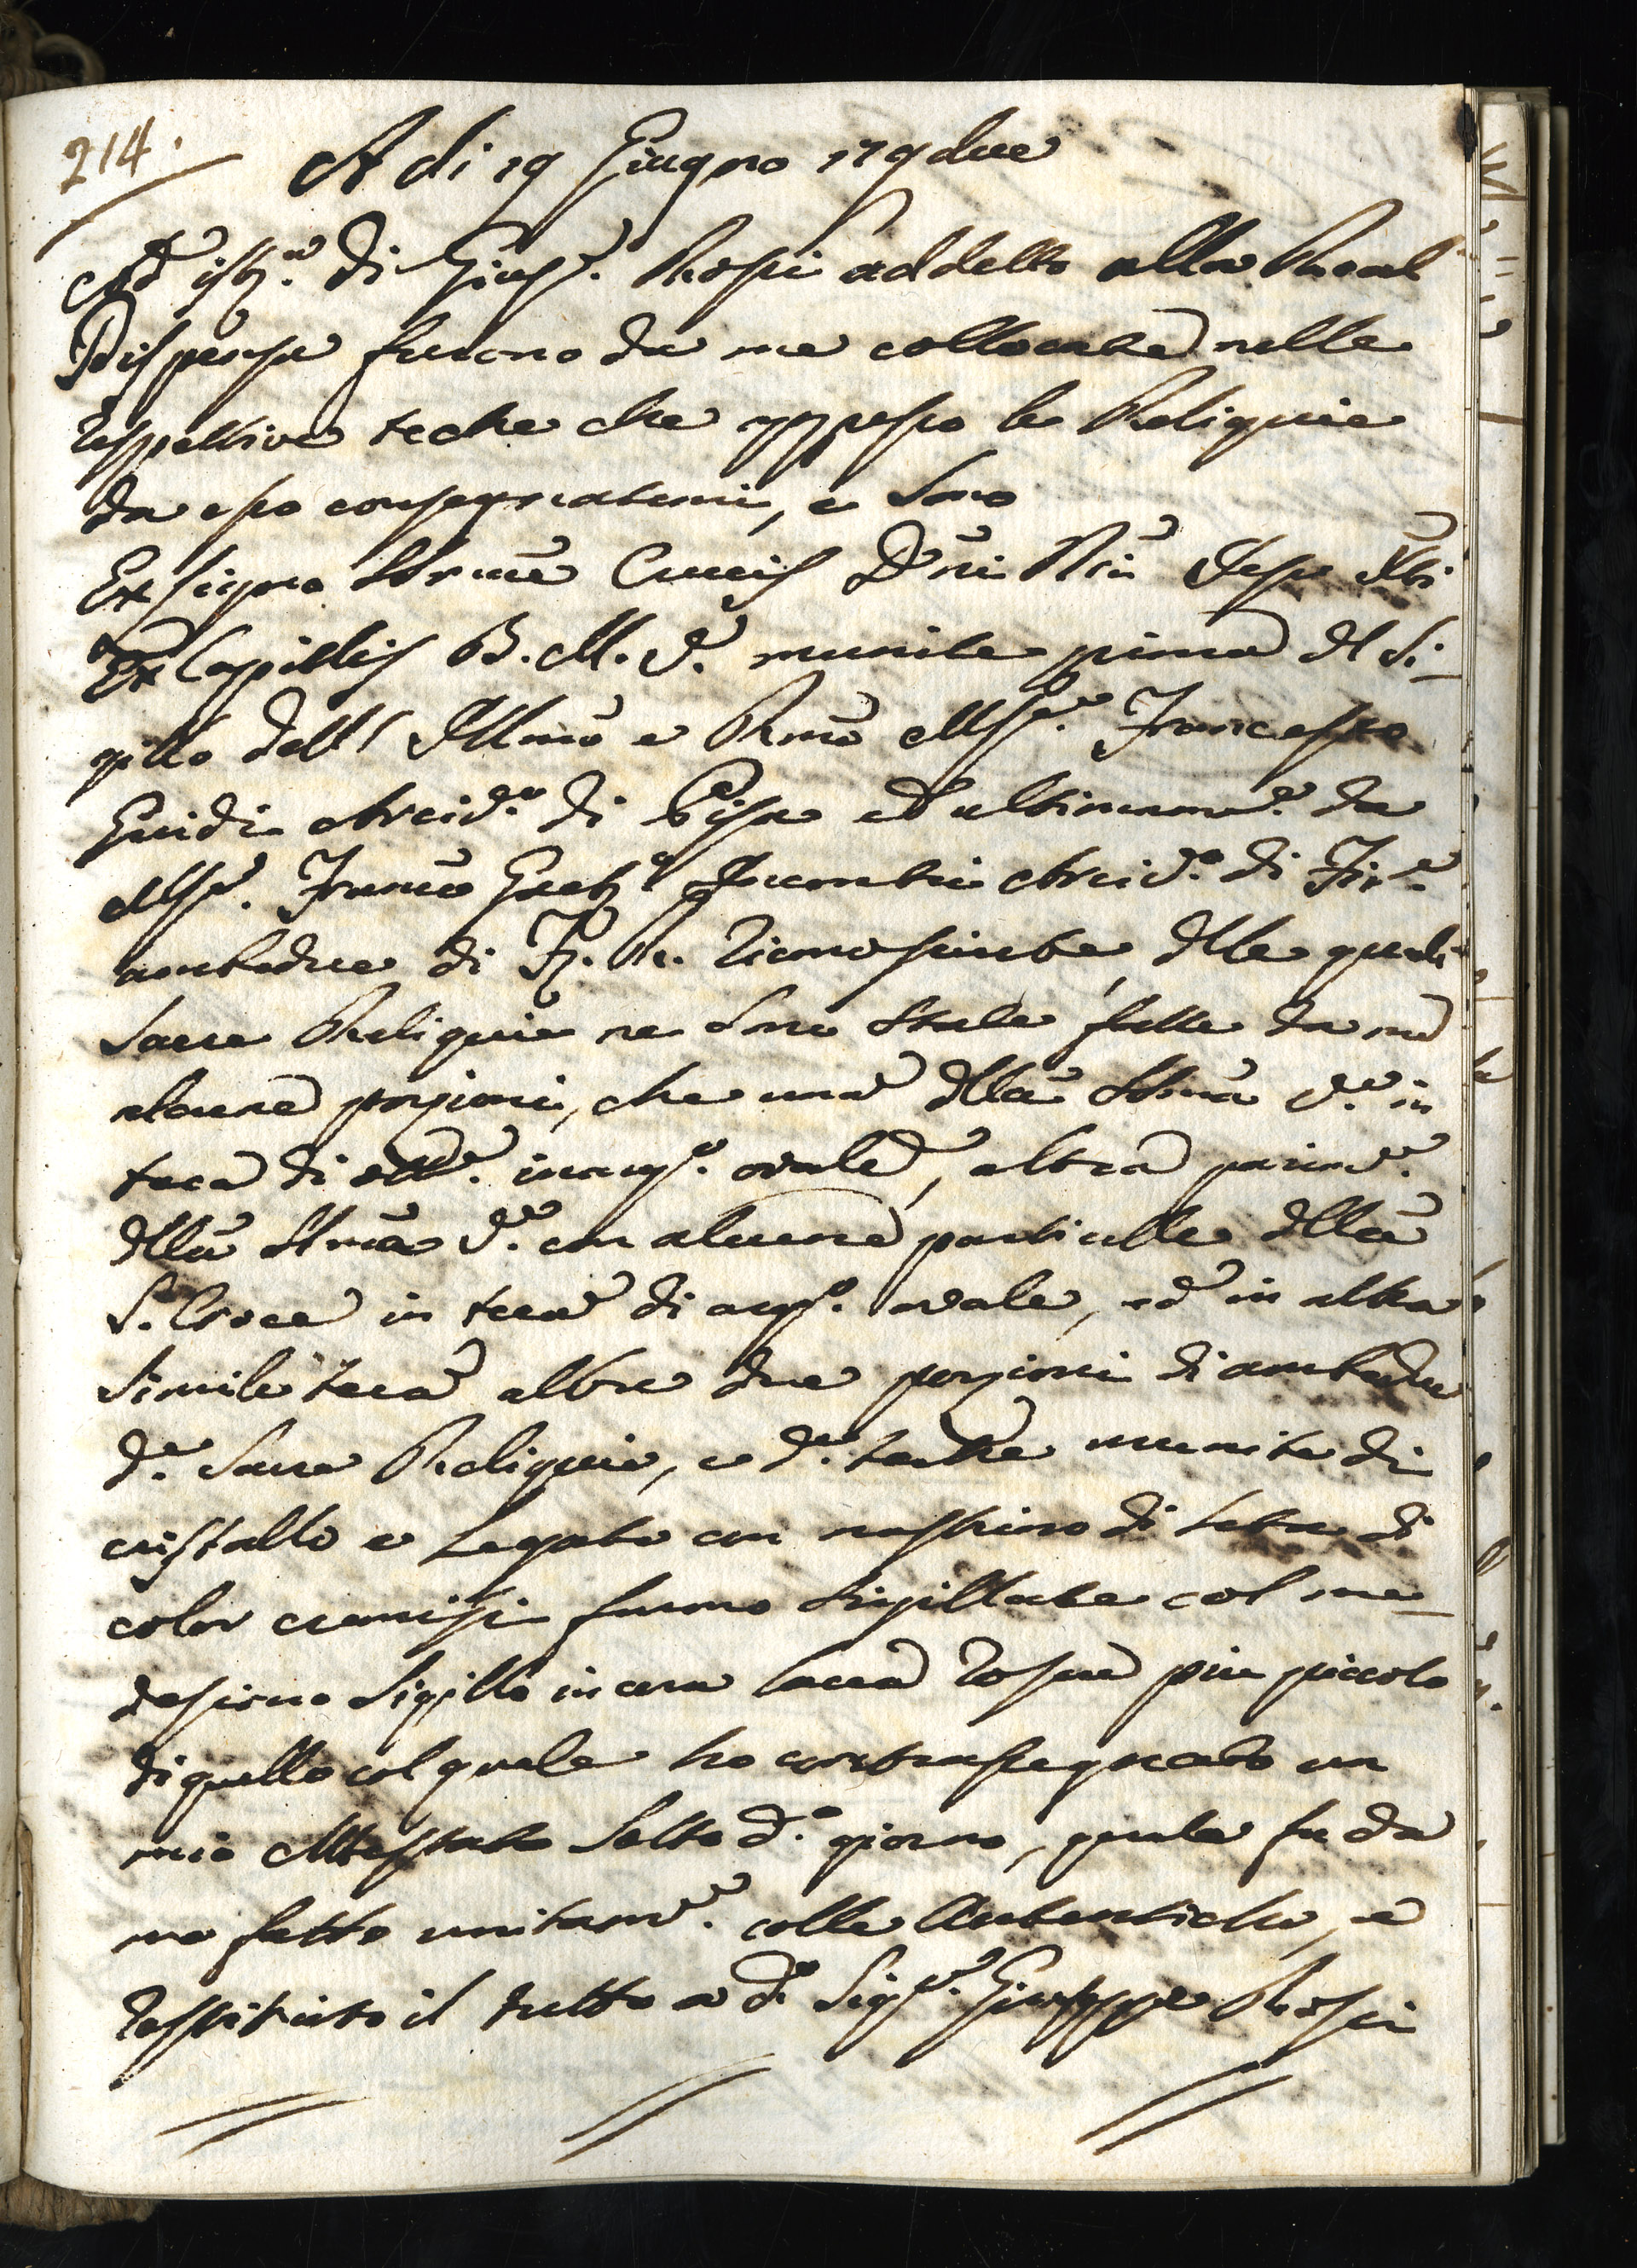 214.
A di 19 Giugno 179due
Ad istz.a di Gius.e Rossi addetto alla Real
Dispensa furono da me collocate nelle
respettive teche che appresso le Reliquie
da esso consegnatemi, e sono
Ex Ligno SSmae Crucis Dni Nri Jesu Xti
Ex Capillis B. M. V. munite prima del Si-
gillo dell' Illmo e Rmo Msre. Francesco
Guidi Arciv.o di Pisa ed ultimame. da
Msre. Franco Gaeto Incontri Arciv.o di Fire.
ambedue di F. R. riconosciute, delle quali
Sacre Reliquie ne sono state fatte da me
alcune porzioni, che una della SSma V.e in
teca di mle. inarg.o ovale, altra parime.
della SSma V.e con alcune particelle della
S. Croce in teca di arg.o ovale, ed in altra
simile teca altre due porzioni di ambedue
d.e Sacre Reliquie, e d.e teche munite di
cristallo e legate con nastrino di seta di
color cremisi furono sigillate col me-
desimo Sigillo in cera lacca rossa più piccolo
di quello col quale ho contrassegnato un
mio Attestato sotto d.o giorno, quale fu da
me fatto unitame. colle Autentiche, e
restituito il tutto a d.o Sigre. Giuseppe Rossi